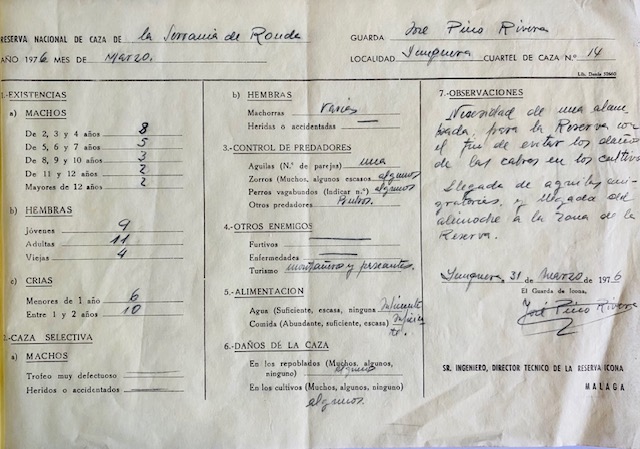 RESERVA NACIONAL DE CAZA DE la Serrania de Ronda
AÑO 1976 MES DE Marzo.
GUARDA José Pino Rivera
LOCALIDAD Yunquera CUARTEL DE CAZA N.º 14
1.-EXISTENCIAS
a) MACHOS
De 2, 3 y 4 años 8
De 5, 6 y 7 años 5
De 8, 9 y 10 años 3
De 11 y 12 años 2
Mayores de 12 años 2
b) HEMBRAS
Jóvenes 9
Adultas 11
Viejas 4
c) CRIAS
Menores de 1 año 6
Entre 1 y 2 años 10
2.-CAZA SELECTIVA
a) MACHOS
Trofeo muy defectuoso
Heridos o accidentados
b) HEMBRAS
Machorras varias
Heridas o accidentadas
3.-CONTROL DE PREDADORES
Aguilas (N.º de parejas) una
Zorros (Muchos, algunos escasos algunos
Perros vagabundos (Indicar n.º) algunos
Otros predadores
4.-OTROS ENEMIGOS
Furtivos
Enfermedades
Turismo montañeros y paseantes.
5.-ALIMENTACION
Agua (Suficiente, escasa, ninguna suficiente
Comida (Abundante, suficiente, escasa) suficien
te.
6.-DAÑOS DE LA CAZA
En los repoblados (Muchos, algunos,
ninguno) alguno
En los cultivos (Muchos, algunos, ninguno)
algunos.
7.-OBSERVACIONES
Necesidad de una alam
pada, para la Reserva con
el fin de evitar los daños
de las cabras en los cultivos
Llegada de aguilas mi-
gratorias, y llegada del
alimoche a la zona de la
Reserva.
Yunquera, 31 de marzo de 1976
El Guarda de Icona,
José Pino Rivera
SR. INGENIERO, DIRECTOR TECNICO DE LA RESERVA ICONA
MALAGA